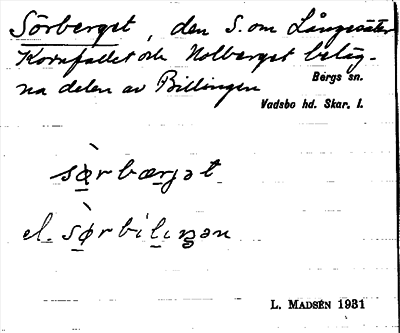 Sörberget, den S. om Långesäter
Kornfallet och Nolberget beläg-
na delen av Billingen
Bergs sn.
Vadsbo hd. Skar. l.
sø̀rbærjət
el. sø̀rbiliŋən
L. MADSÉN 1931